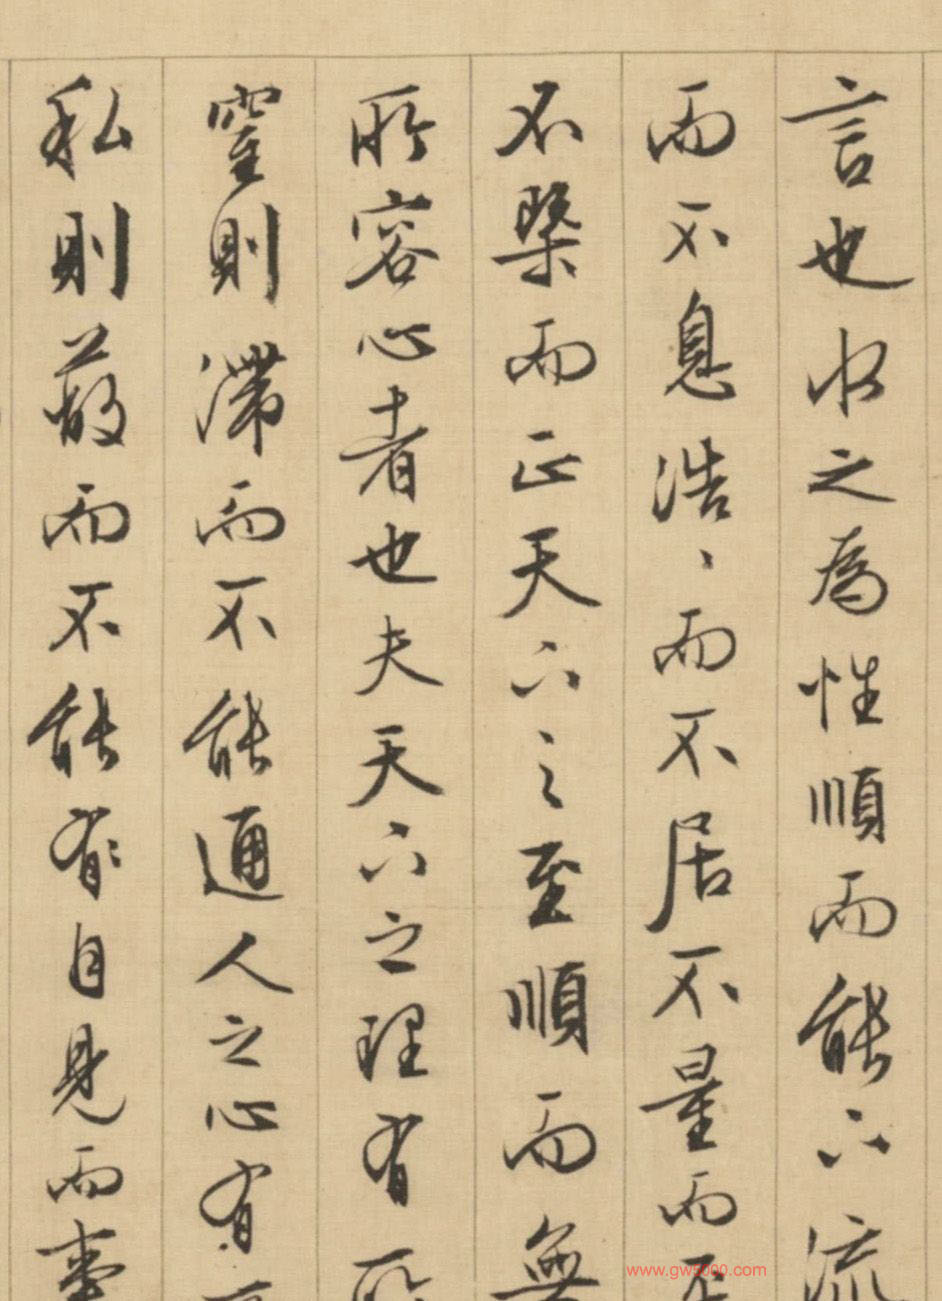 言也水之為性順而能下流
而不息浩〻而不居不量而不
不槩而正天下之至順而無
所容心者也夫天下之理有所
窒則滯而不能通人之心有
私則蔽而不能有自見而
www.gw5000.com